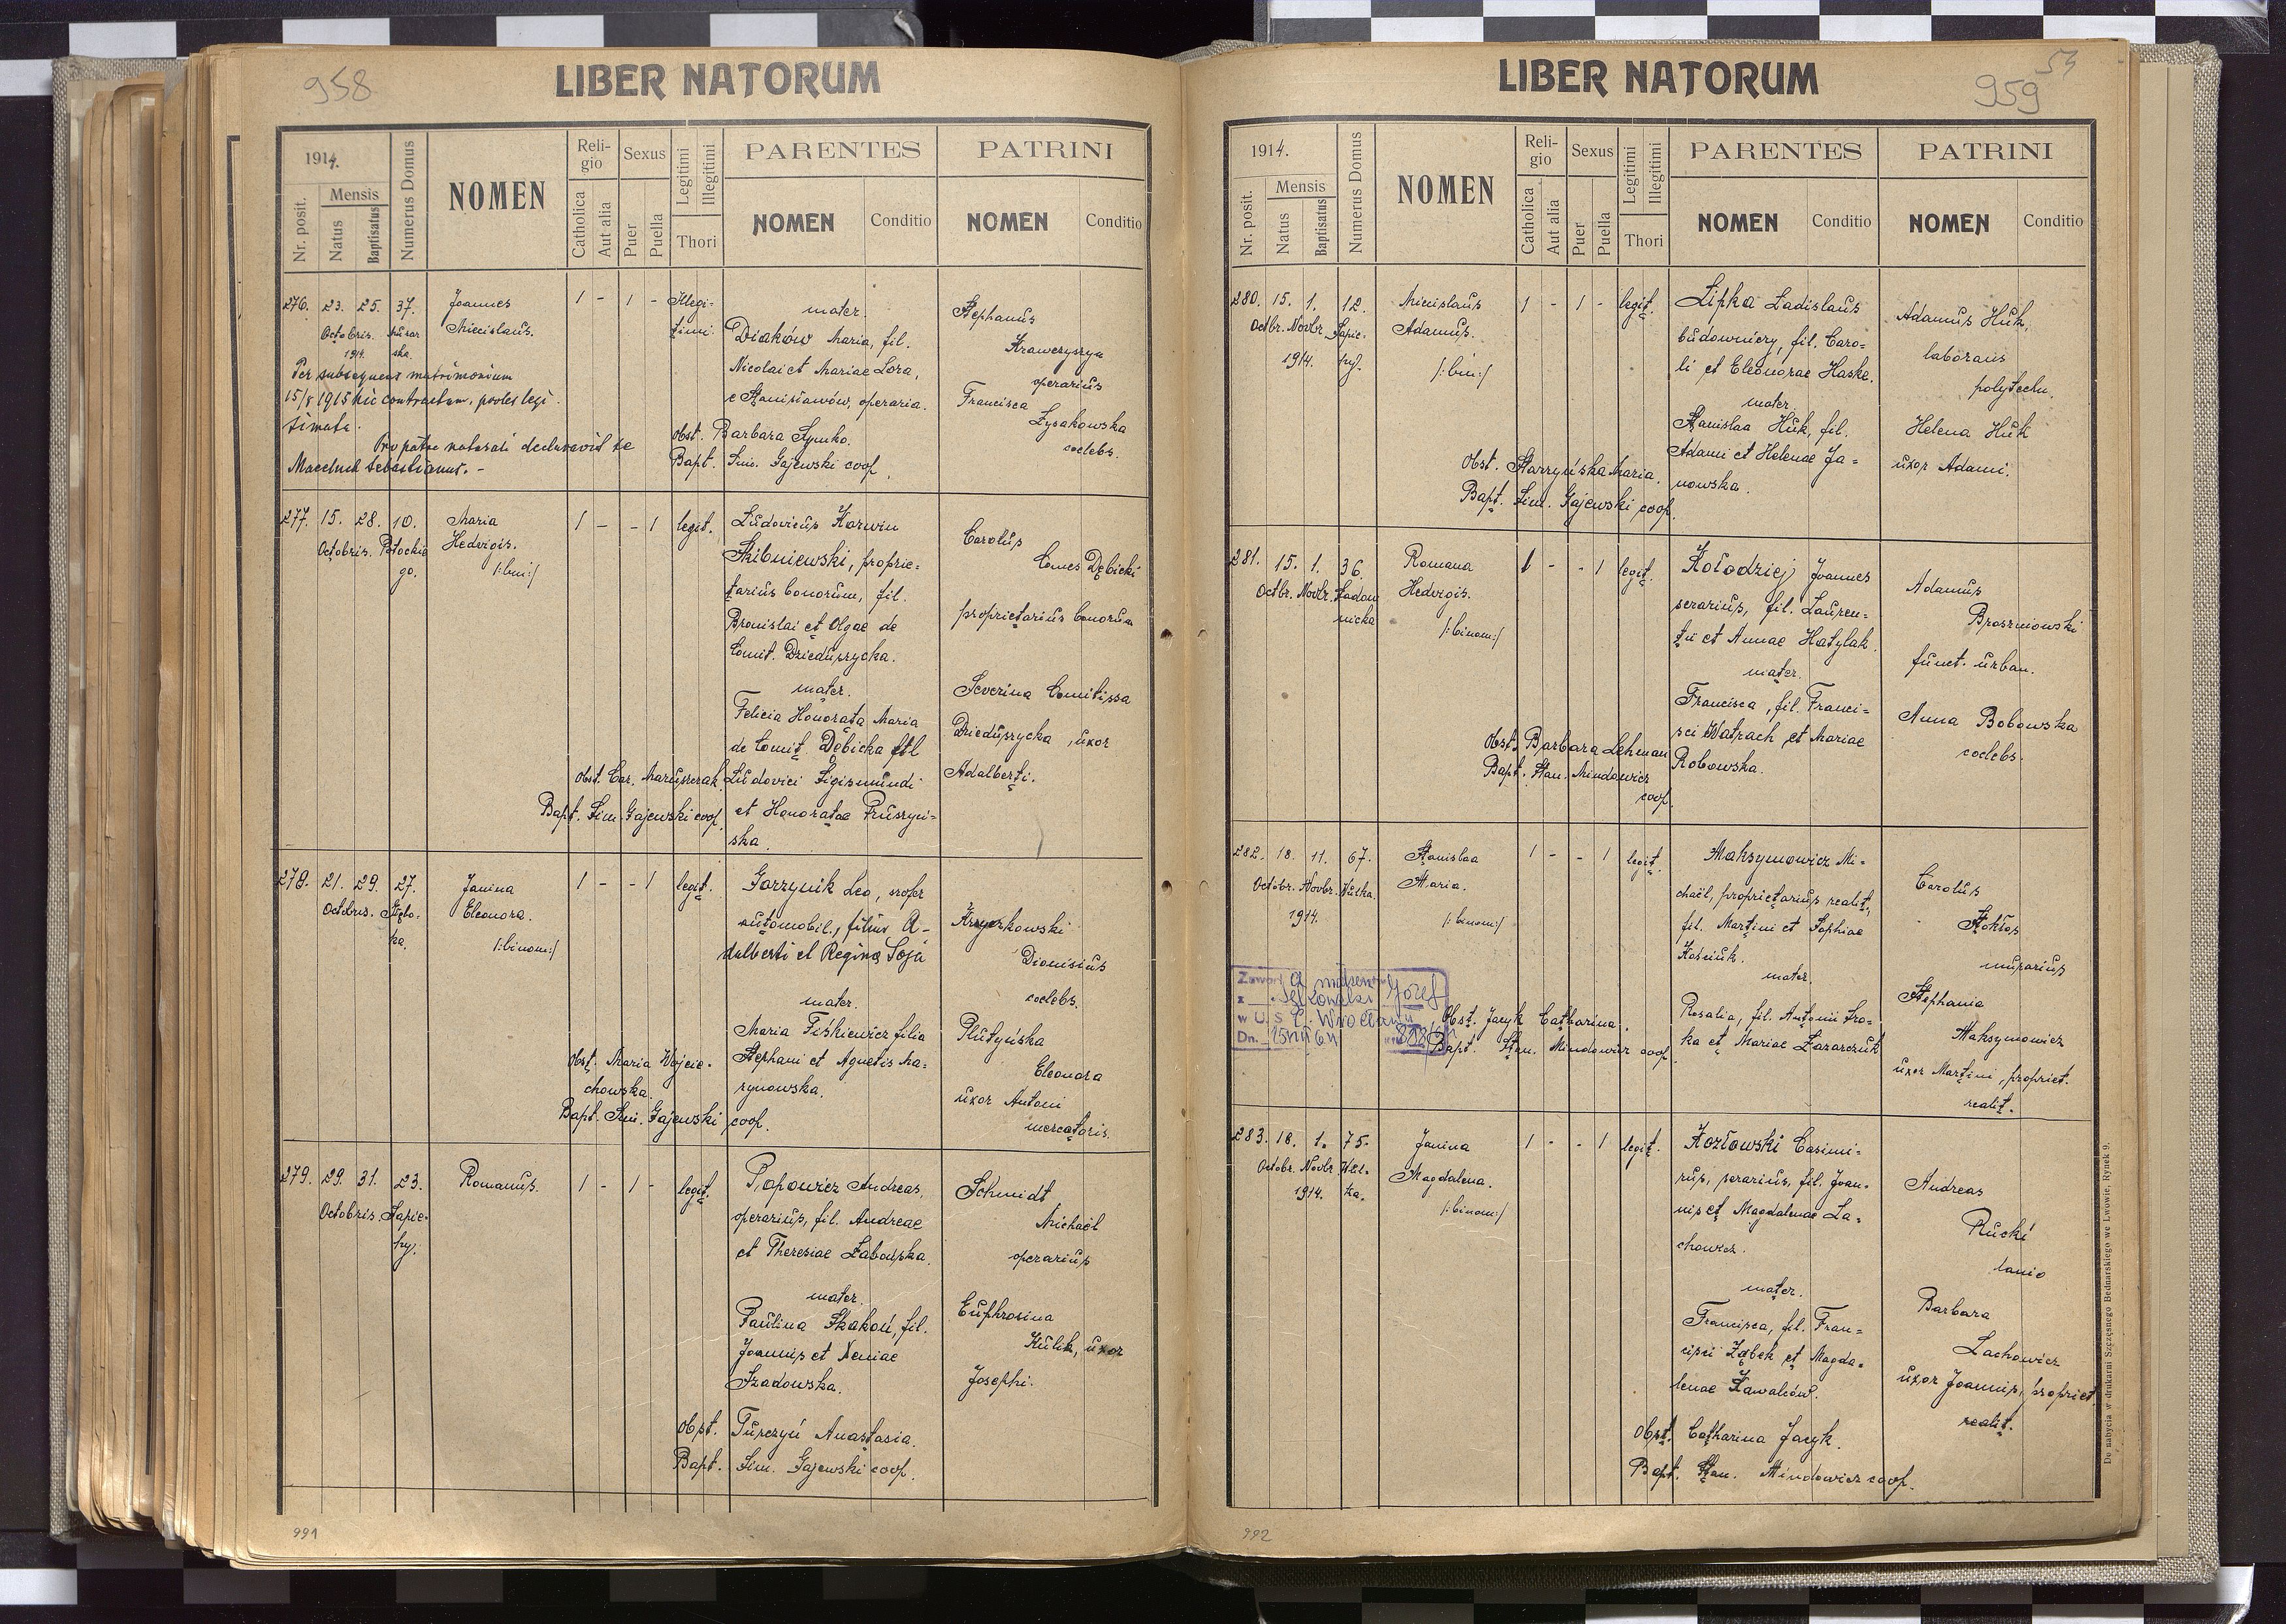 958
LIBER NATORUM
1914.
Nr. posit.
Mensis
Natus
Baptisatus
Numerus Domus
NOMEN
Religio
Catholica
Aut alia
Sexus
Puer
Puella
Legitimi
Illegitimi
Thori
PARENTES
NOMEN
Conditio
PATRINI
NOMEN
Conditio
276. 23. 25. 37.
Octobris.
1914.
Joannes
Miecislaus.
1 - 1 -
Illegi-
timi
mater.
Diaków Maria, fil.
Nicolai et Mariae Lora,
e Stanisławów, operaria.
Obst. Barbara Synko.
Bapt. Sim. Gajewski coop.
Stephanus
Krawczyszyn
operarius
Francisca
Łysakowska
coelebs.
Per subsequens matrimonium
15/8 1915 hic contractum, proles legi-
timata.
Pro patre naturali declaravit se
Maceluch Sebastianus. -
277. 15. 28. 10.
Octobris. Potockie
go.
Maria
Hedvigis.
/:bin:/
1 - - 1 legit.
Ludovicus Karwin
Skibniewski, proprie-
tarius bonorum, fil.
Bronislai et Olgae de
Comit. Dzieduszycka.
mater.
Felicia Honorata Maria
de Comit. Dębicka fil
Ludovici Sigismundi
et Honoratae Pruszyń-
ska.
Obst. Car. Maruszczak.
Bapt. Sim. Gajewski coop.
Carolus
Comes Dębicki
proprietarius bonorum
Severina Comitissa
Dzieduszycka, uxor
Adalberti.
278. 21. 29. 27.
Octobris.
Janina
Eleonora.
/:binom:/
1 - - 1 legit.
Garzynik Leo, szofer
automobil., filius A-
dalberti et Regina Soja
mater.
Maria Fiśkiewicz filia
Stephani et Agnetis Ma-
rynowska.
Obst. Maria Wojcie-
chowska.
Bapt. Sim. Gajewski coop.
Krzyszkowski
Dionisius
coelebs.
Plutyńska
Eleonora
uxor Antoni
mercatoris.
279. 29. 31. 23.
Octobris. Sapie-
hy.
Romanus.
1 - 1 - legit.
Popowicz Andreas,
operarius, fil. Andreae
et Theresiae Żabowska.
mater.
Paulina Skakoń, fil.
Joannis et Xeniae
Szadowska.
Obst. Turczyń Anastasia.
Bapt. Sim. Gajewski coop.
Schmidt
Michaël
operarius
Euphrosina
Kulik, uxor
Josephi.
991
54
959
LIBER NATORUM
1914.
Nr. posit.
Mensis
Natus
Baptisatus
Numerus Domus
NOMEN
Religio
Catholica
Aut alia
Sexus
Puer
Puella
Legitimi
Illegitimi
Thori
PARENTES
NOMEN
Conditio
PATRINI
NOMEN
Conditio
280. 15. 1. 12.
Octbr. Novbr. Sapie-
1914. hy.
Miecislaus
Adamus.
/:bin:/
1 - 1 - legit.
Lipka Ladislaus
budowniczy, fil. Caro-
li et Eleonorae Haske.
mater.
Stanislaa Huk, fil.
Adami et Helenae Ja-
nowska.
Obst. Starzyńska Maria.
Bapt. Sim. Gajewski coop.
Adamus Huk,
laborans
polytechn.
Helena Huk
uxor Adami.
281. 15. 1. 36.
Octbr. Novbr. Sadow
nicka
Romana
Hedvigis.
/:binom:/
1 - - 1 legit.
Kołodziej Joannes
serarius, fil. Lauren-
tii et Annae Hatylak.
mater.
Francisca, fil. Franci-
sci Watrach et Mariae
Robowska.
Obst. Barbara Lehman
Bapt. Stan. Mindowicz
coop.
Adamus
Broszniowski
funct. urban.
Anna Bobowska
coelebs.
282. 18. 11. 67.
Octobr. Novbr.
1914.
Stanislaa
Maria.
/:binom:/
1 - - 1 legit.
Maksymowicz Mi-
chaël, proprietarius realit.,
fil. Martini et Sophiae
Kościuk.
mater.
Rosalia, fil. Antonii Sro-
ka et Mariae Łazarczuk
Obst. Jacyk Catharina.
Bapt. Stan. Mindowicz coop.
Carolus
Stokłos
murarius
Stephania
Maksymowicz
uxor Martini, propriet.
realit.
Józef
w U.S.C. Wrocław
Dn.
283. 18. 1. 75.
Octobr. Novbr.
1914.
Janina
Magdalena.
/:binom:/
1 - - 1 legit.
Kozłowski Casimi-
rus, serarius, fil. Joan-
nis et Magdalenae La-
chowicz.
mater.
Francisca, fil. Fran-
cisci Ząbek et Magda-
lenae Kawałków.
Obst. Catharina Jacyk.
Bapt. Stan. Mindowicz coop.
Andreas
Rucki
lanio
Barbara
Lachowicz
uxor Joannis, propriet.
realit.
Do nabycia w drukarni Szczęsnego Bednarskiego we Lwowie, Rynek 9.
992